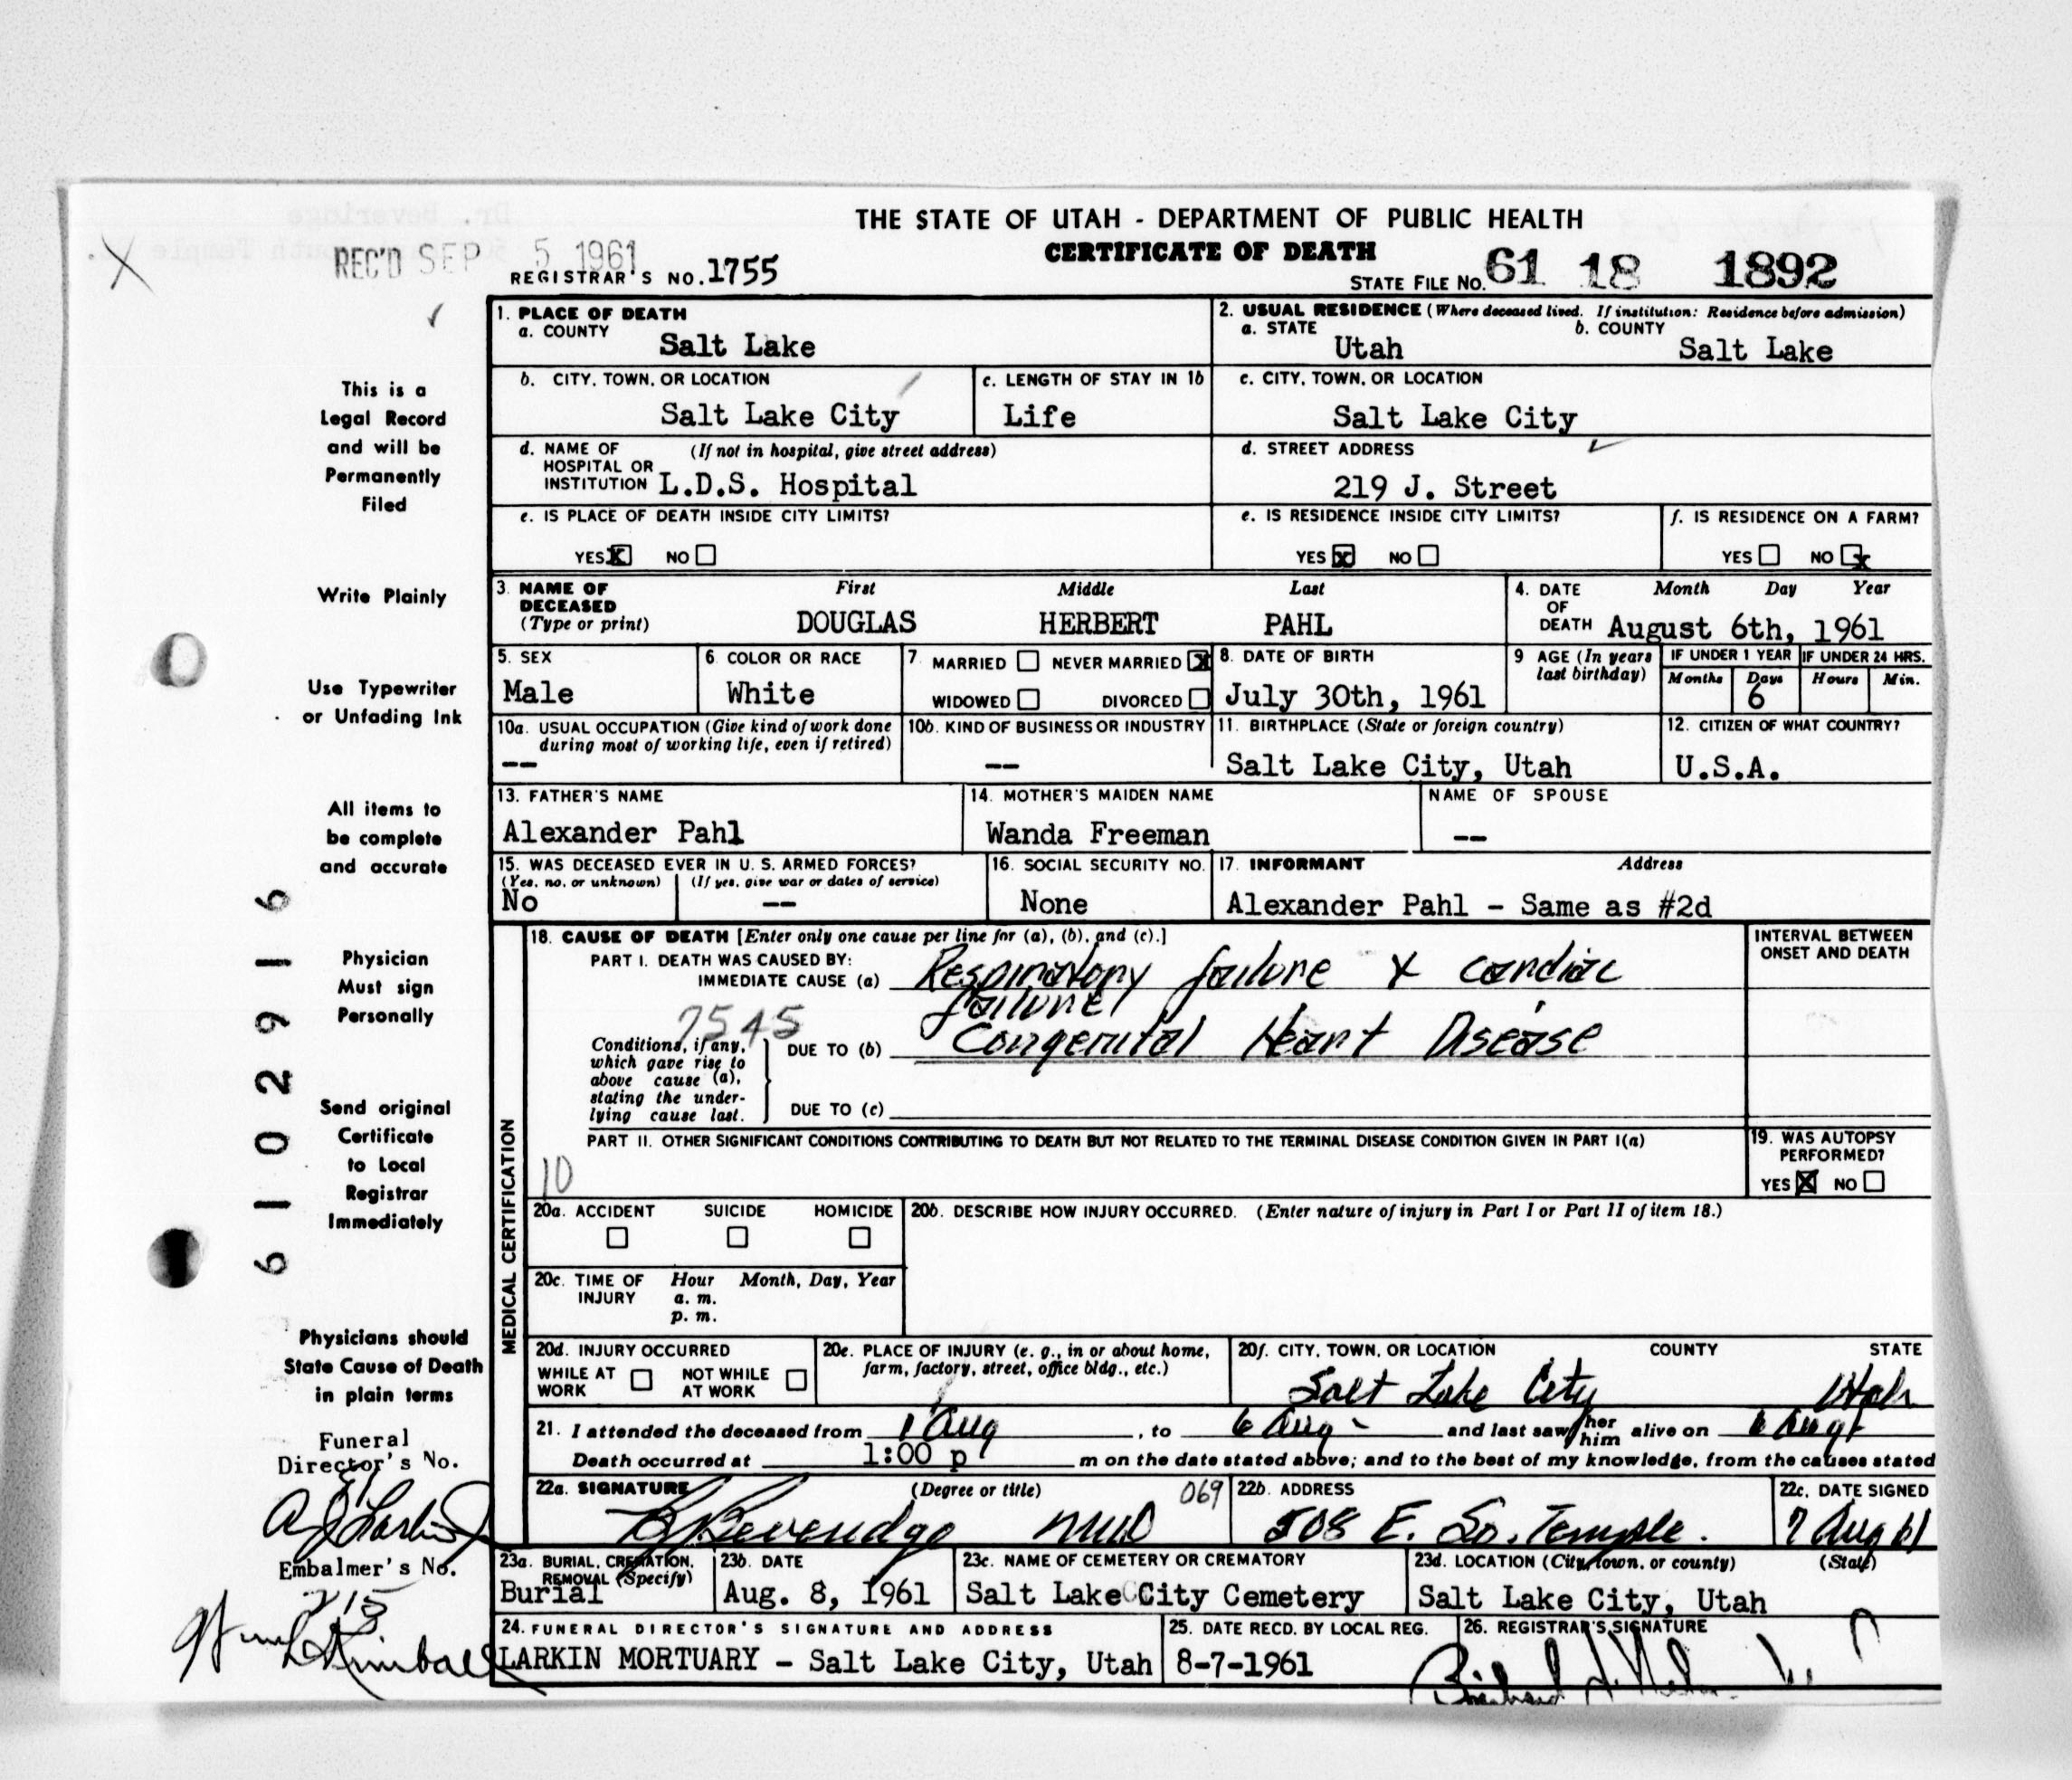 THE STATE OF UTAH - DEPARTMENT OF PUBLIC HEALTH
CERTIFICATE OF DEATH
REC'D SEP 5 1961
REGISTRAR'S NO. 1755
STATE FILE NO. 61 18 1892
This is a
Legal Record
and will be
Permanently
Filed
Write Plainly
Use Typewriter
or Unfading Ink
All items to
be complete
and accurate
Physician
Must sign
Personally
Send original
Certificate
to Local
Registrar
Immediately
Physicians should
State Cause of Death
in plain terms
Funeral
Director's No.
Embalmer's No.
215
Kimball
61029 16
1. PLACE OF DEATH
a. COUNTY
Salt Lake
2. USUAL RESIDENCE (Where deceased lived. If institution: Residence before admission)
a. STATE b. COUNTY
Utah Salt Lake
b. CITY, TOWN, OR LOCATION
Salt Lake City
c. LENGTH OF STAY IN 1b
Life
c. CITY, TOWN, OR LOCATION
Salt Lake City
d. NAME OF (If not in hospital, give street address)
HOSPITAL OR
INSTITUTION L.D.S. Hospital
d. STREET ADDRESS
219 J. Street
e. IS PLACE OF DEATH INSIDE CITY LIMITS?
YES X NO
e. IS RESIDENCE INSIDE CITY LIMITS?
YES X NO
f. IS RESIDENCE ON A FARM?
YES NO X
3. NAME OF DECEASED (Type or print)
First Middle Last
DOUGLAS HERBERT PAHL
4. DATE OF DEATH Month Day Year
August 6th, 1961
5. SEX
Male
6 COLOR OR RACE
White
7 MARRIED NEVER MARRIED X
WIDOWED DIVORCED
8. DATE OF BIRTH
July 30th, 1961
9 AGE (In years last birthday)
IF UNDER 1 YEAR IF UNDER 24 HRS.
Months Days Hours Min.
6
10a. USUAL OCCUPATION (Give kind of work done
during most of working life, even if retired)
--
10b. KIND OF BUSINESS OR INDUSTRY
--
11. BIRTHPLACE (State or foreign country)
Salt Lake City, Utah
12. CITIZEN OF WHAT COUNTRY?
U.S.A.
13. FATHER'S NAME
Alexander Pahl
14. MOTHER'S MAIDEN NAME
Wanda Freeman
NAME OF SPOUSE
--
15. WAS DECEASED EVER IN U. S. ARMED FORCES?
(Yes, no, or unknown) (If yes, give war or dates of service)
No --
16. SOCIAL SECURITY NO.
None
17. INFORMANT Address
Alexander Pahl - Same as #2d
MEDICAL CERTIFICATION
18. CAUSE OF DEATH [Enter only one cause per line for (a), (b), and (c).]
PART I. DEATH WAS CAUSED BY:
IMMEDIATE CAUSE (a) Respiratory failure & cardiac
failure
7545
Conditions, if any,
which gave rise to
above cause (a),
stating the under-
lying cause last.
DUE TO (b) Congenital Heart Disease
DUE TO (c)
INTERVAL BETWEEN
ONSET AND DEATH
PART II. OTHER SIGNIFICANT CONDITIONS CONTRIBUTING TO DEATH BUT NOT RELATED TO THE TERMINAL DISEASE CONDITION GIVEN IN PART I(a)
10
19. WAS AUTOPSY
PERFORMED?
YES X NO
20a. ACCIDENT SUICIDE HOMICIDE
20b. DESCRIBE HOW INJURY OCCURRED. (Enter nature of injury in Part I or Part II of item 18.)
20c. TIME OF INJURY Hour Month, Day, Year
a. m.
p. m.
20d. INJURY OCCURRED
WHILE AT WORK NOT WHILE AT WORK
20e. PLACE OF INJURY (e. g., in or about home,
farm, factory, street, office bldg., etc.)
20f. CITY, TOWN, OR LOCATION COUNTY STATE
Salt Lake City Utah
21. I attended the deceased from 1 Aug, to 6 Aug and last saw her him alive on 6 Aug
Death occurred at 1:00 p m on the date stated above; and to the best of my knowledge, from the causes stated
22a. SIGNATURE (Degree or title) 069
Beveridge MD
22b. ADDRESS
508 E. So. Temple.
22c. DATE SIGNED
7 Aug 61
23a. BURIAL, CREMATION,
REMOVAL (Specify)
Burial
23b. DATE
Aug. 8, 1961
23c. NAME OF CEMETERY OR CREMATORY
Salt Lake City Cemetery
23d. LOCATION (City, town, or county) (State)
Salt Lake City, Utah
24. FUNERAL DIRECTOR'S SIGNATURE AND ADDRESS
LARKIN MORTUARY - Salt Lake City, Utah
25. DATE RECD. BY LOCAL REG.
8-7-1961
26. REGISTRAR'S SIGNATURE